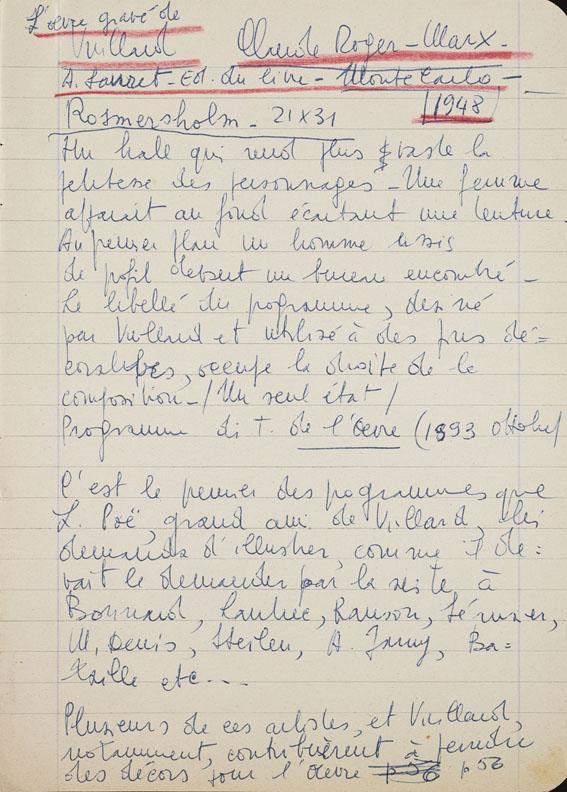 L'œvre gravé de
Vuillard Claude Roger-Marx-
A. Sauret-Ed. du livre-Monte Carlo-
(1948)
Rosmersholm - 21x31
Un hale qui rend plus vaste la
petitesse des personnages - Une femme
apparait au fond écartant une tenture.
Au premier plan un homme assis
de profil devant un bureau encombré -
Le libellé du programme, dessiné
par Vuillard et utilisé à des fins dé=
coratives, occupe la droite de la
composition - / Un seul état /
Programme du T. de l'œvre (1893 Octobre)
C'est le premier des programmes que
L. Poë, grand ami de Vuillard, lui
demanda d'illustrer, comme il de=
vait le demander par la suite à
Bonnard, Lautrec, Ranson, Sérusier,
M. Denis, Steilen, A. Jarry, Ba=
taille etc...
Plusieurs de ces artistes, et Vuillard,
notamment, contribuèrent à peindre
des décors pour l'Œvre p 56 p 56